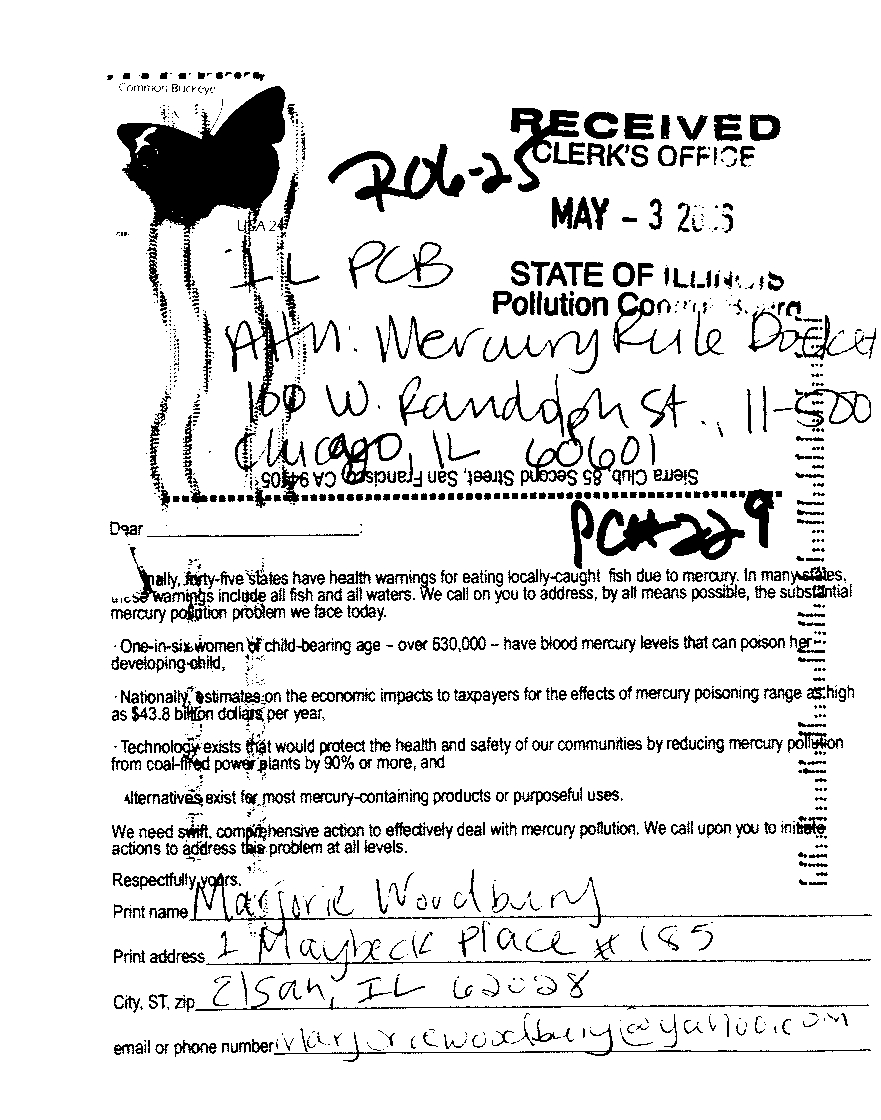 Common Buckeye
USA 24
RECEIVED
CLERK'S OFFICE
R06-25
MAY - 3 2006
STATE OF ILLINOIS
Pollution Control Board
IL PCB
Attn: Mercury Rule Docket
100 W. Randolph St., 11-500
Chicago, IL 60601
Sierra Club, 85 Second Street, San Francisco, CA 94105
PC#229
Dear :
nally, forty-five states have health warnings for eating locally-caught fish due to mercury. In many states,
these warnings include all fish and all waters. We call on you to address, by all means possible, the substantial
mercury pollution problem we face today.
· One-in-six women of child-bearing age – over 630,000 – have blood mercury levels that can poison her
developing child,
· Nationally, estimates on the economic impacts to taxpayers for the effects of mercury poisoning range as high
as $43.8 billion dollars per year,
· Technology exists that would protect the health and safety of our communities by reducing mercury pollution
from coal-fired power plants by 90% or more, and
Alternatives exist for most mercury-containing products or purposeful uses.
We need swift, comprehensive action to effectively deal with mercury pollution. We call upon you to initiate
actions to address this problem at all levels.
Respectfully yours,
Print name Marjorie Woodbury
Print address 1 Maybeck Place # 185
City, ST, zip Elsah, IL 62028
email or phone number marjoriewoodbury@yahoo.com